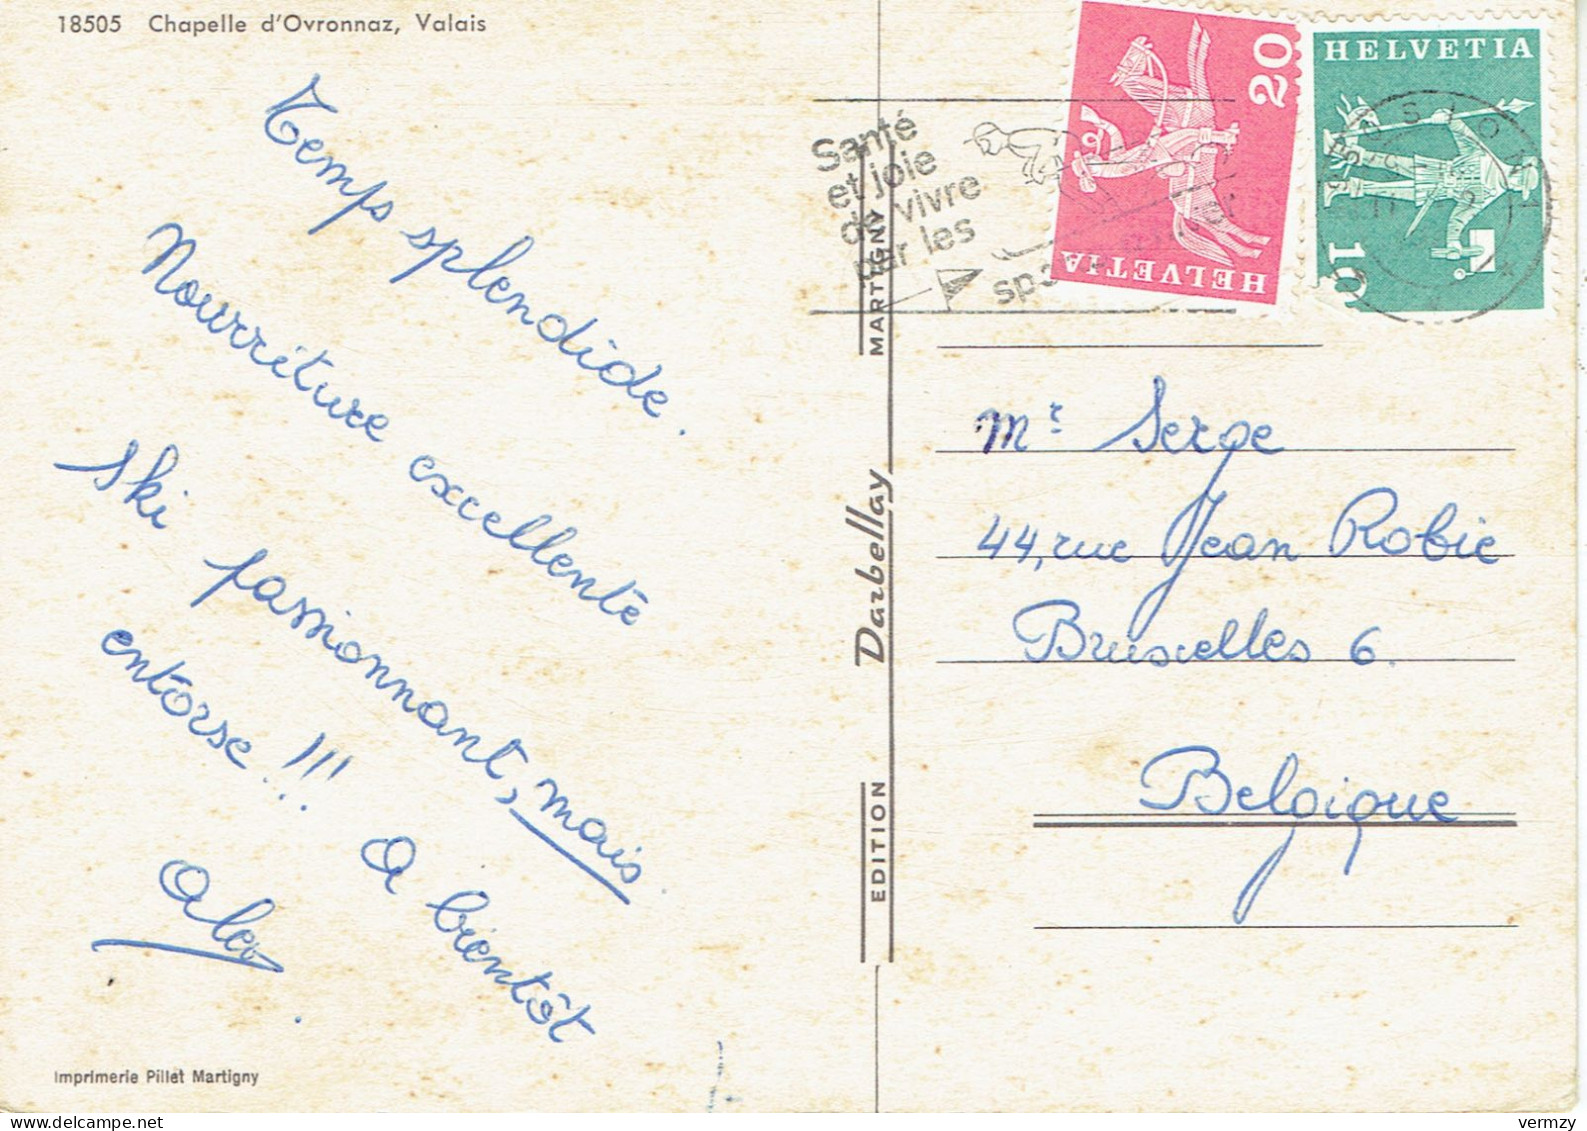 18505 Chapelle d'Ovronnaz, Valais
Temps splendide.
Nourriture excellente
Ski passionnant, mais
entorse!!!
A bientôt
Alex.
Imprimerie Pillet Martigny
EDITION Darbellay MARTIGNY
Santé
et joie
de vivre
par les
HELVETIA 20
HELVETIA
10
SION 1
Mr Serge
44, rue Jean Robie
Bruxelles 6.
Belgique
delcampe.net
vermzy